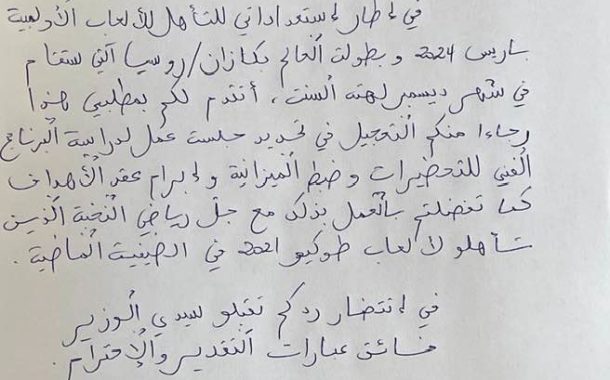 في إطار إستعداداتي للتأهل للألعاب الأولمبية
باريس 2024 و بطولة العالم بكازان/روسيا التي ستقام
في شهر ديسمبر لهته السنت، أتقدم لكم بمطلبي هذا
رجاءا منكم التعجيل في تحديد جلست عمل لدراسة البرنامج
الفني للتحضيرات وضبط الميزانية و إبرام عقد الأهداف
كما تفضلتم بالعمل بذلك مع جل رياضي النخبة الذين
تأهلو لألعاب طوكيو 2021 في الصيفية الماضية.
في إنتضار ردكم تقبلو سيدي الوزير
فائق عبارات التقدير والإحترام.